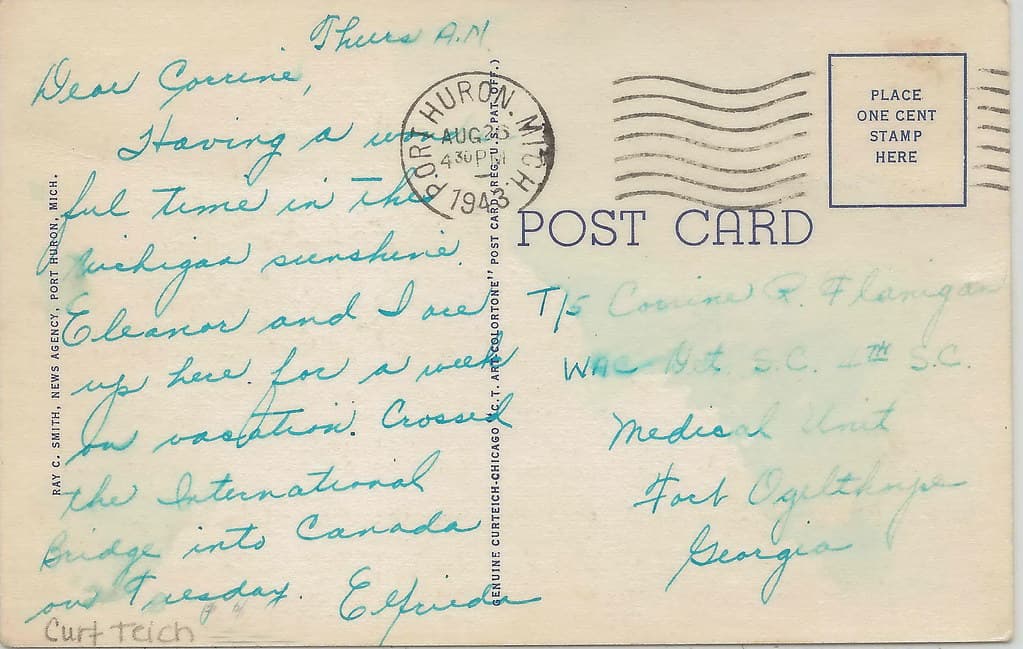 Thurs A.M.
Dear Corrine,
Having a wonder
ful time in this
Michigan sunshine.
Eleanor and I are
up here for a week
on vacation. Crossed
the International
Bridge into Canada
on Tuesday. Elfrieda
Curt Teich
RAY C. SMITH, NEWS AGENCY, PORT HURON, MICH.
GENUINE CURTEICH-CHICAGO "C.T. ART-COLORTONE" POST CARD (REG. U.S. PAT. OFF.)
PORT HURON, MICH.
AUG
4 30 PM
1943
PLACE
ONE CENT
STAMP
HERE
POST CARD
T/5 Corrine R. Flanigan
WAC Det. S.C. TH S.C.
Medical Unit
Fort Oglthorpe
Georgia